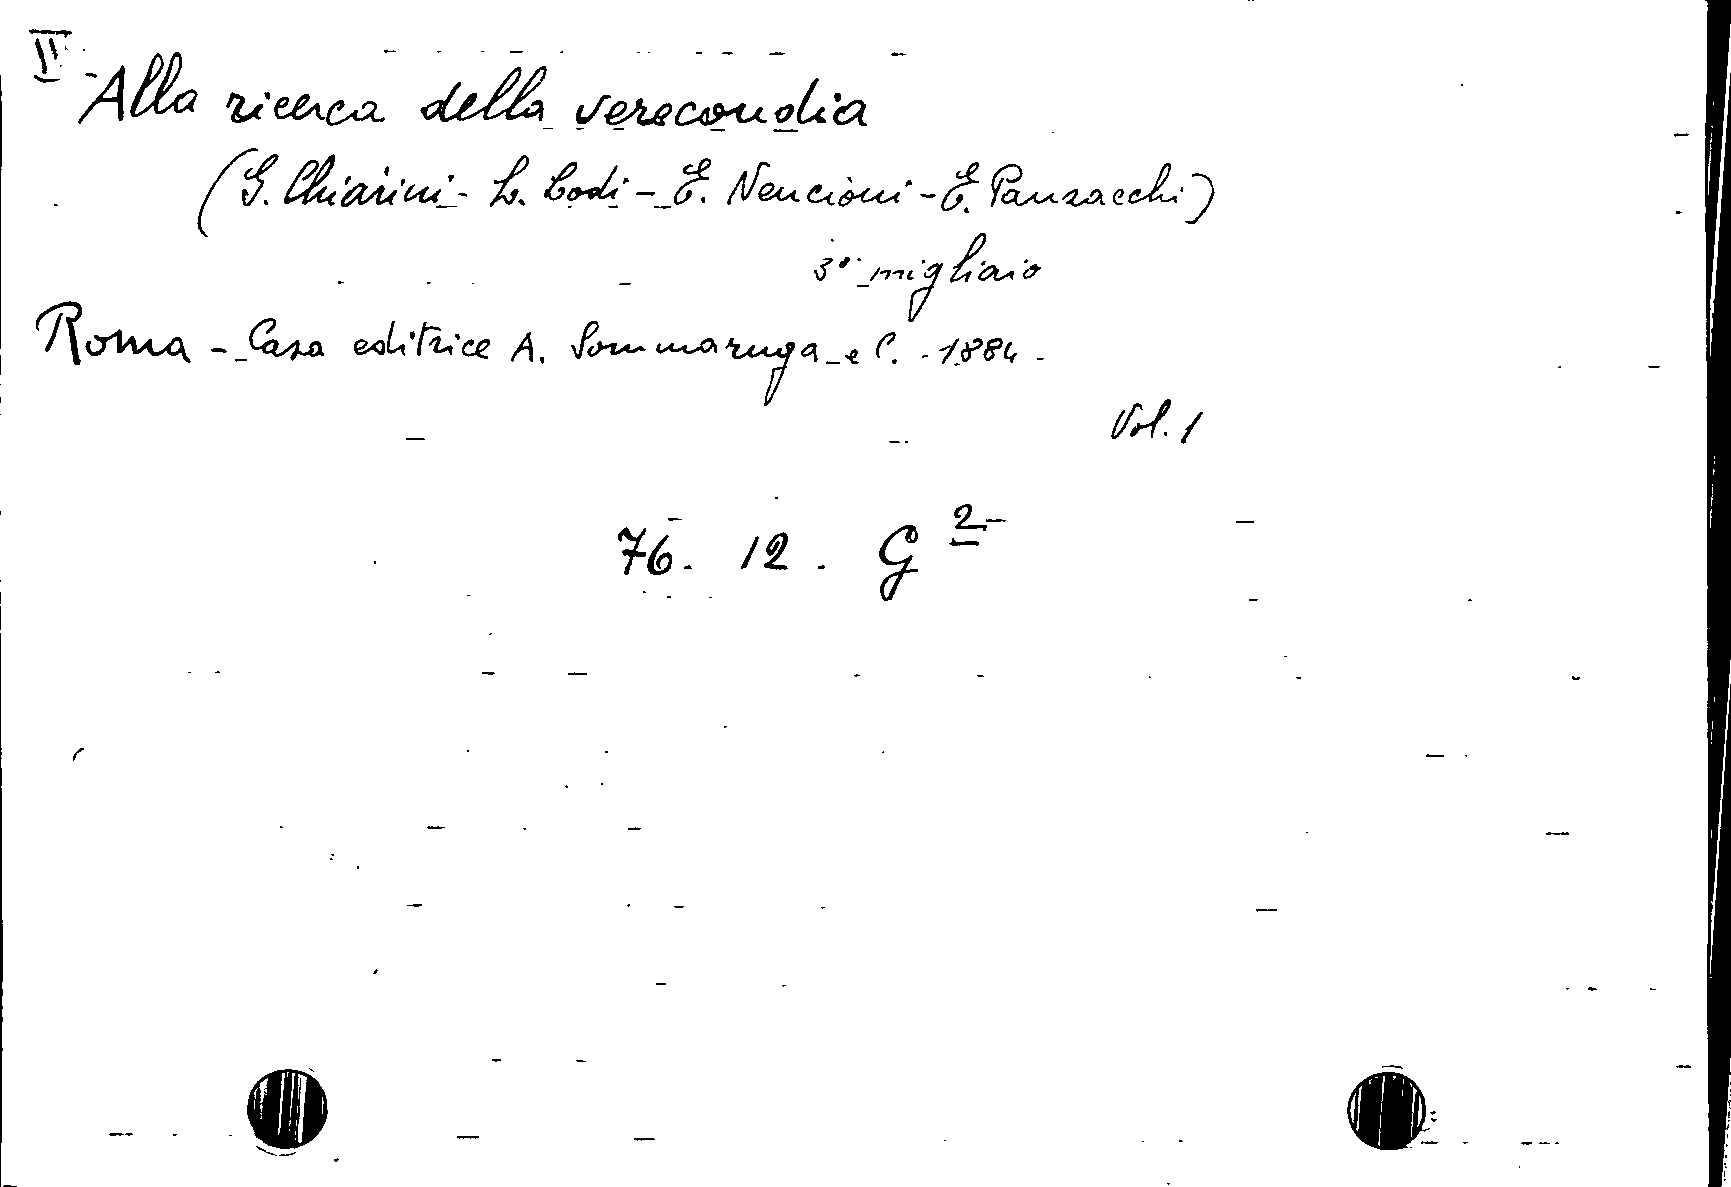 II
Alla ricerca della verecondia
(G. Chiarini - L. Lodi - E. Nencioni - E. Panzacchi)
3° migliaio
Roma - Casa editrice A. Sommaruga e C. - 1884 -
Vol. 1
76. 12. G 2